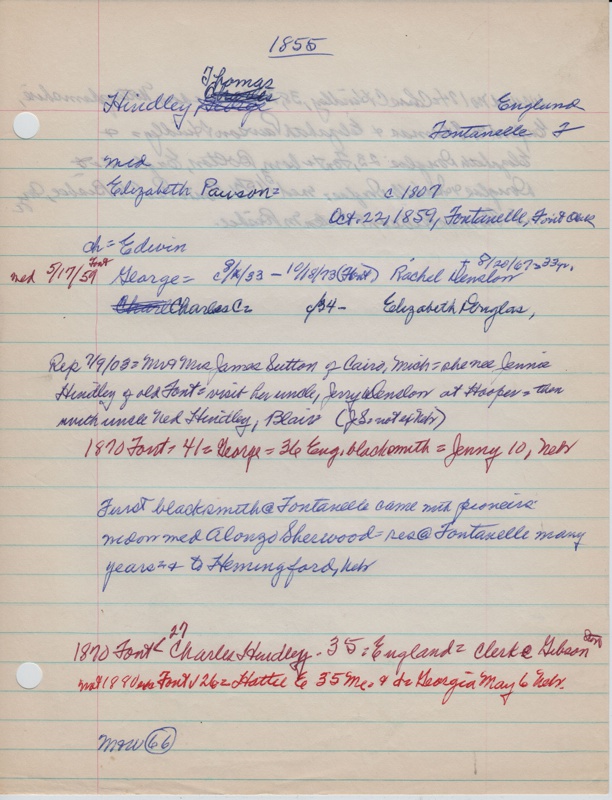 1855
Thomas
Hindley, England
Fontanelle
med
Elizabeth Pawson = c 1807
Oct. 22, 1859, Fontanelle, Font
ch = Edwin
med 5/17/59 Font George = c 9/ /33 - 10/18/73 (Font) Rachel Denslow + 8/20/67 = 33 yr.
Charles C = c/34 - Elizabeth Douglas,
Rep 7/9/03 = Mr & Mrs James Sutton of Cairo, Mich = she nee Jennie
Hindley of old Font = visit her uncle, Jerry Denslow at Hooper = then
with uncle Ned Hindley, Blair (J S = not of Nebr)
1870 Font = 41 = George = 36 Eng. blacksmith = Jenny 10, Nebr
First blacksmith @ Fontanelle came with pioneers
widow med Alonzo Sherwood = res @ Fontanelle many
years = & to Hemingford, Nebr
1870 Font 27 Charles Hindley - 35 = England = clerk @ Gibson store
1890 Font 126 = Hattie E 35 Me. & da Georgia May 6 Nebr.
M & W 66